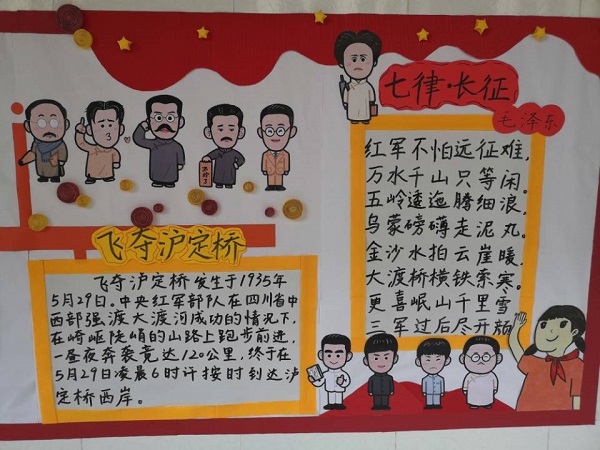 飞夺沪定桥
飞夺沪定桥发生于1935年
5月29日。中央红军部队在四川省中
西部强渡大渡河成功的情况下,
在崎岖陡峭的山路上跑步前进,
一昼夜奔袭竟达120公里,终于在
5月29日凌晨6时许按时到达泸
定桥西岸。
七律·长征
毛泽东
红军不怕远征难,
万水千山只等闲。
五岭逶迤腾细浪,
乌蒙磅礴走泥丸。
金沙水拍云崖暖,
大渡桥横铁索寒。
更喜岷山千里雪
三军过后尽开颜